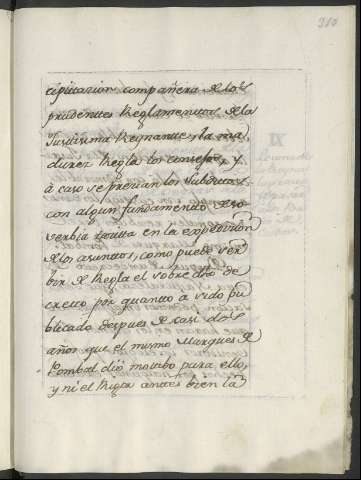 310
cipitacion compañera de los
prudentes Reglamentos de la
Justisima Reynante, la ma
durez Regla los consejos, y
à caso se previan los subditos
con algun fundamento de so
verbia en la expedicion
de los asuntos, como puede ser
bir de Regla el sobre dño de
creeto por quanto a vido pu
blicado despues de casi dos
años que el mismo Marques de
Pombal dió motibo para ello,
y ni el Rigor antes bien la